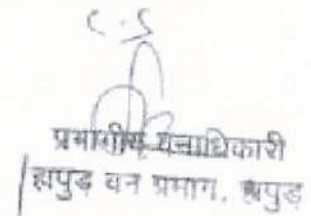 प्रभागीय वनाधिकारी
हापुड़ वन प्रभाग, हापुड़